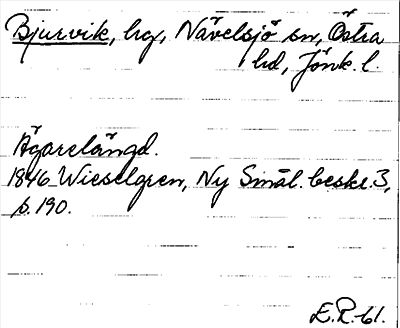 Bjurvik, hrg, Nävelsjö sn, Östra
hd, Jönk. l.
Ägarelängd.
1846 Wieselgren, Ny Smål. beskr. 3,
s. 190.
E.R.-61.